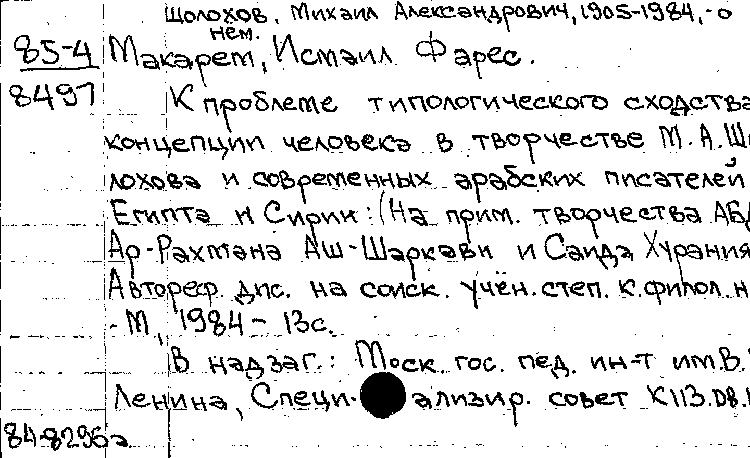 Шолохов, Михаил Александрович, 1905-1984, - о
нем.
85-4 Макарем, Исмаил Фарес.
8497 К проблеме типологического сходства
концепции человека в творчестве М.А.Шо
лохова и современных арабских писателей
Египта и Сирии: (На прим. творчества АБД
Ар-Рахмана Аш-Шаркави и Саида Хурания
Автореф. дис. на соиск. учён. степ. к. филол. н
- М, 1984 - 13с.
В надзаг.: Моск. гос. пед. ин-т им. В.
Ленина, Специализир. совет К113.08.
84-8296а